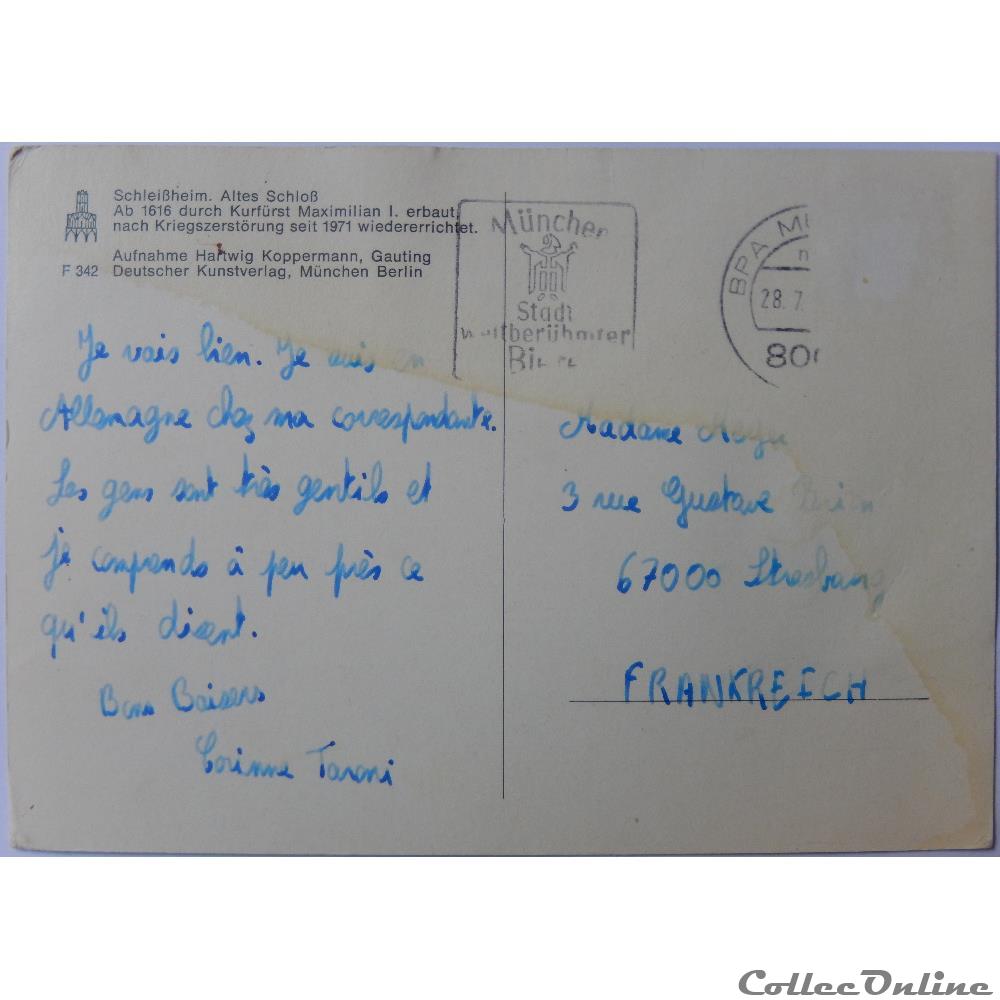 Schleißheim. Altes Schloß
Ab 1616 durch Kurfürst Maximilian I. erbaut,
nach Kriegszerstörung seit 1971 wiedererrichtet.
Aufnahme Hartwig Koppermann, Gauting
F 342 Deutscher Kunstverlag, München Berlin
München
Stadt
weltberühmter
BPA
28. 7.
Je vais bien. Je suis en
Allemagne chez ma correspondante.
Les gens sont très gentils et
je comprends à peu près ce
qu'ils disent.
Bons Baisers
Corinne Tarani
Madame
3 rue Gustave
67000 Strasbourg
FRANKREICH
CollecOnline